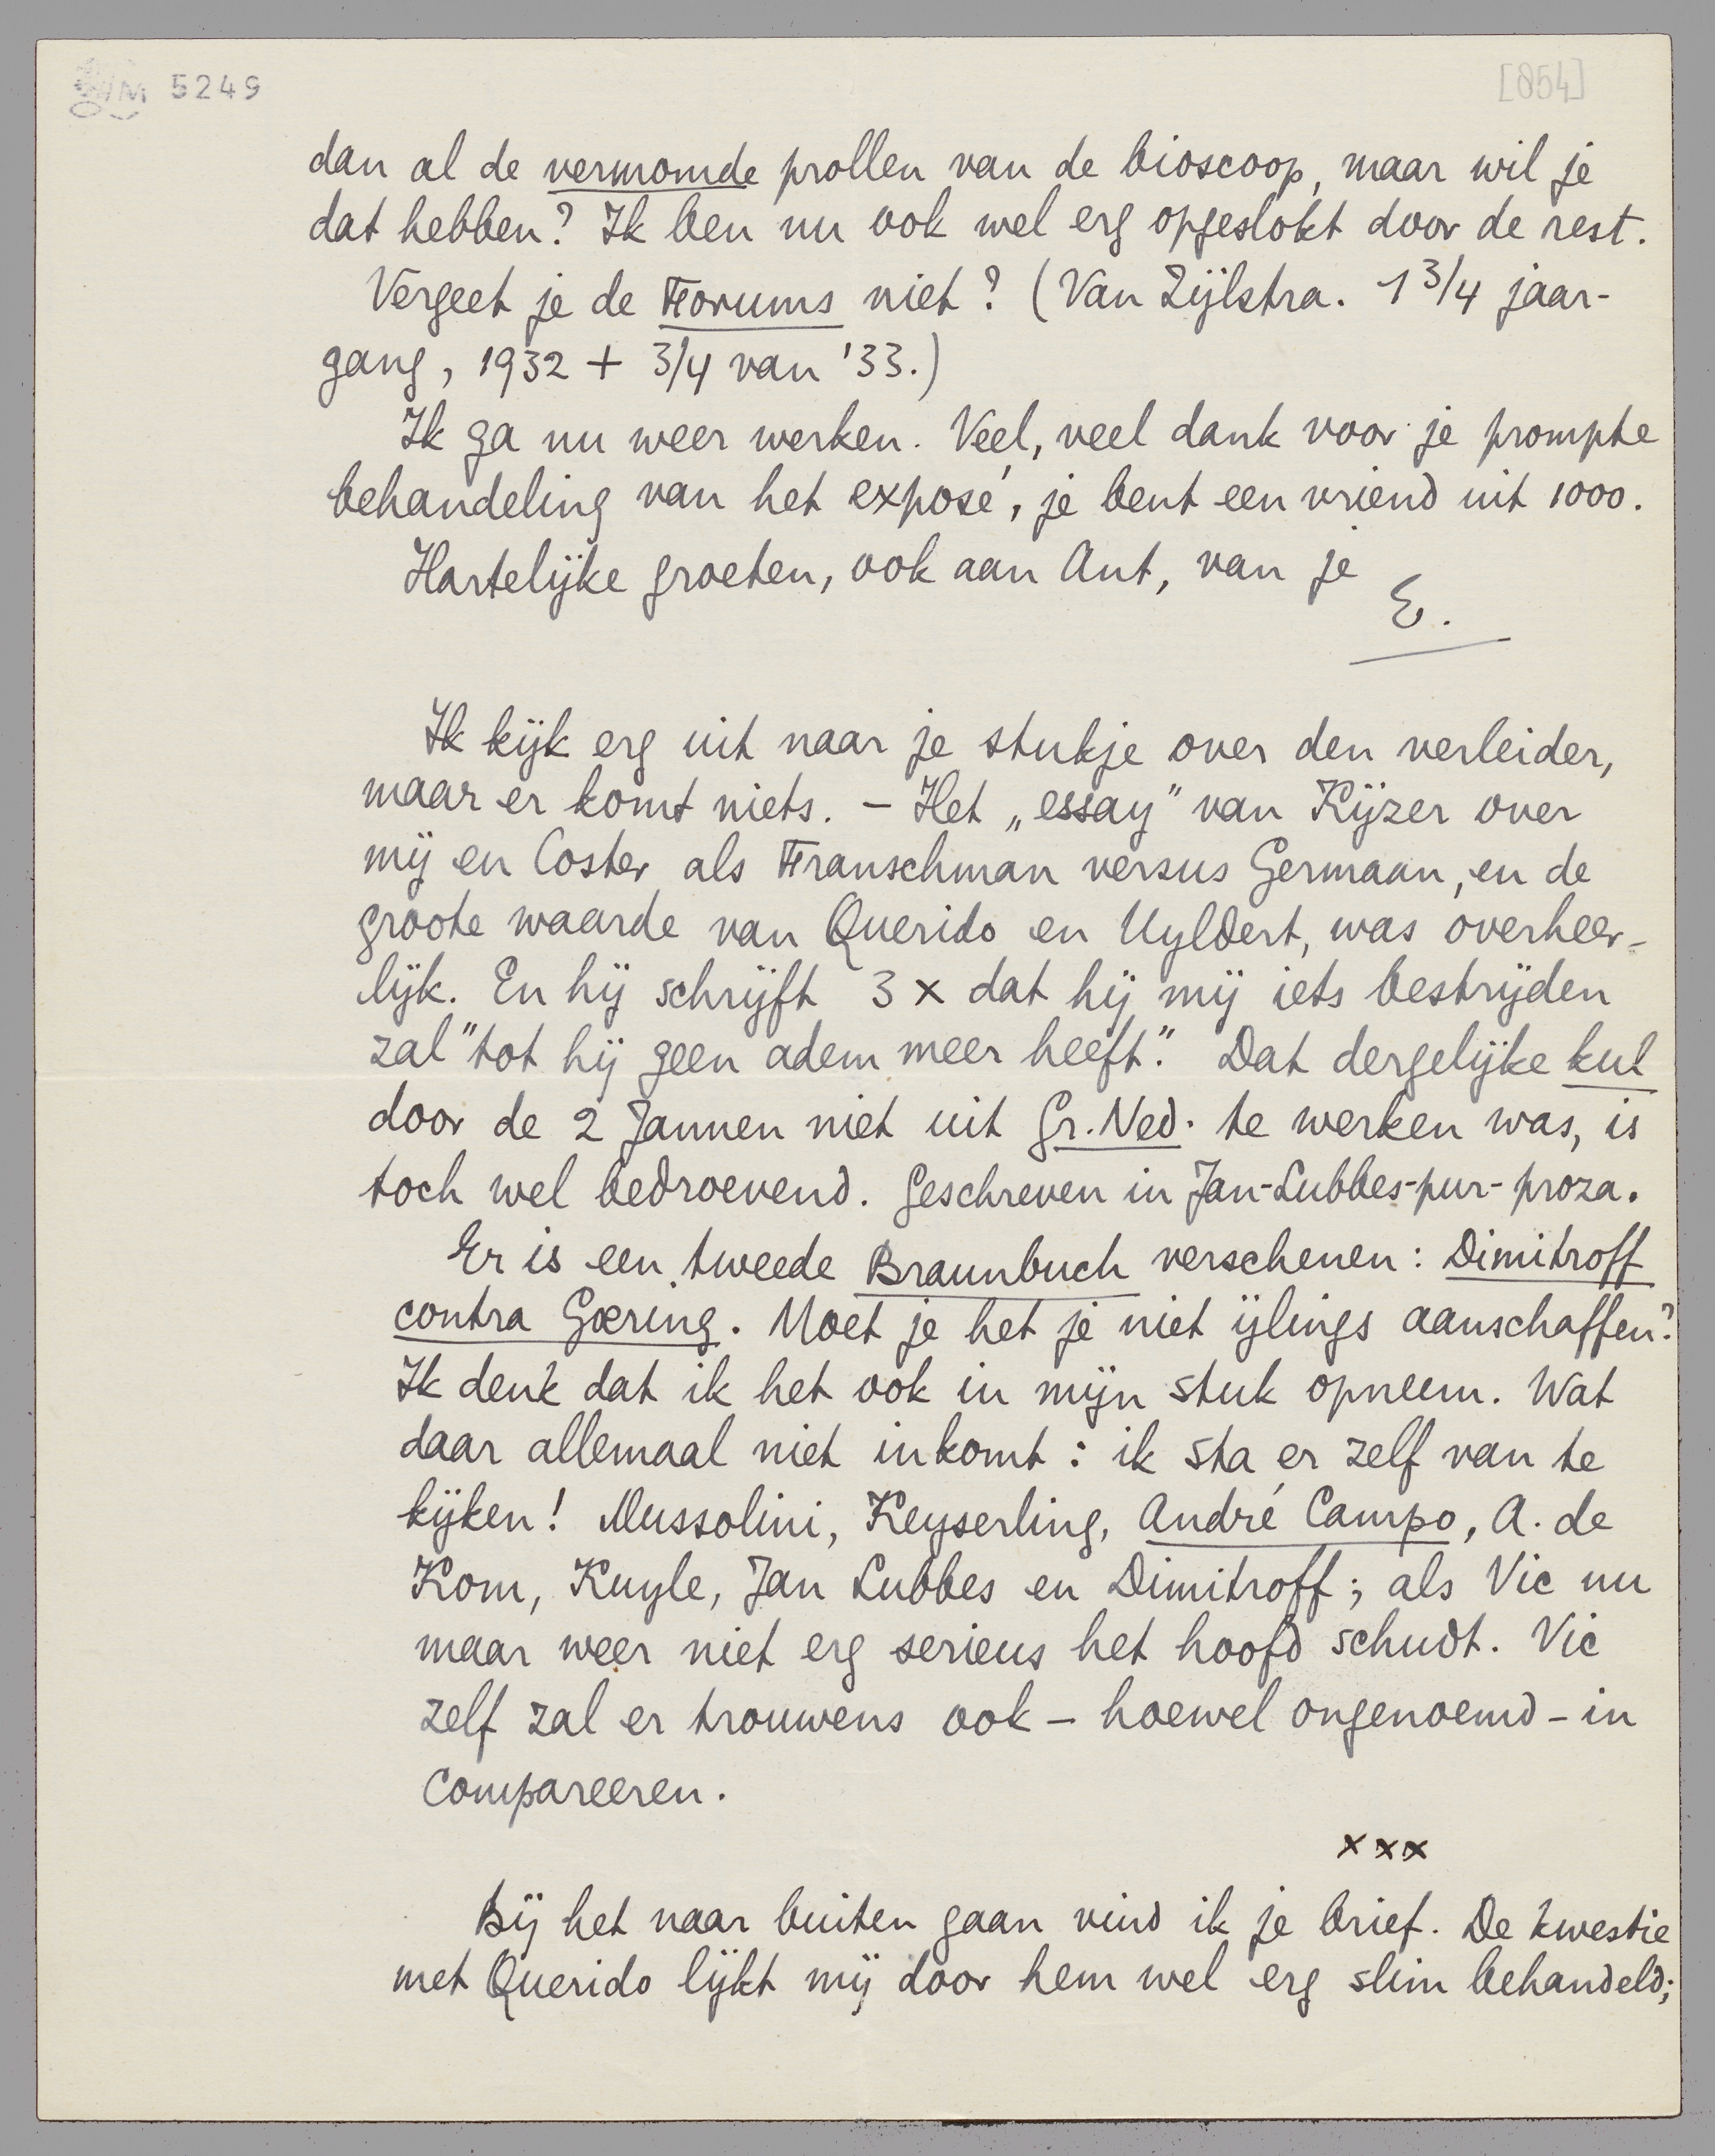 5249
[854]
dan al de vermomde prollen van de bioscoop, maar wil je
dat hebben? Ik ben nu ook wel erg opgeslokt door de rest.
Vergeet je de Forums niet? (Van Zijlstra. 1 3/4 jaar-
gang, 1932 + 3/4 van '33.)
Ik ga nu weer werken. Veel, veel dank voor je prompte
behandeling van het exposé, je bent een vriend uit 1000.
Hartelijke groeten, ook aan Ant, van je
E.
Ik kijk erg uit naar je stukje over den verleider,
maar er komt niets. – Het „essay" van Kijzer over
mij en Coster als Franschman versus Germaan, en de
groote waarde van Querido en Uyldert, was overheer-
lijk. En hij schrijft 3 x dat hij mij iets bestrijden
zal "tot hij geen adem meer heeft." Dat dergelijke kul
door de 2 Jannen niet uit Gr. Ned. te werken was, is
toch wel bedroevend. Geschreven in Jan-Lubbes-pur-proza.
Er is een tweede Braunbuch verschenen: Dimitroff
contra Gœring. Moet je het je niet ijlings aanschaffen?
Ik denk dat ik het ook in mijn stuk opneem. Wat
daar allemaal niet inkomt: ik sta er zelf van te
kijken! Mussolini, Keyserling, André Campo, A. de
Kom, Kuyle, Jan Lubbes en Dimitroff; als Vic nu
maar weer niet erg serieus het hoofd schudt. Vic
zelf zal er trouwens ook – hoewel ongenoemd – in
compareeren.
x x x
Bij het naar buiten gaan vind ik je brief. De kwestie
met Querido lijkt mij door hem wel erg slim behandeld;